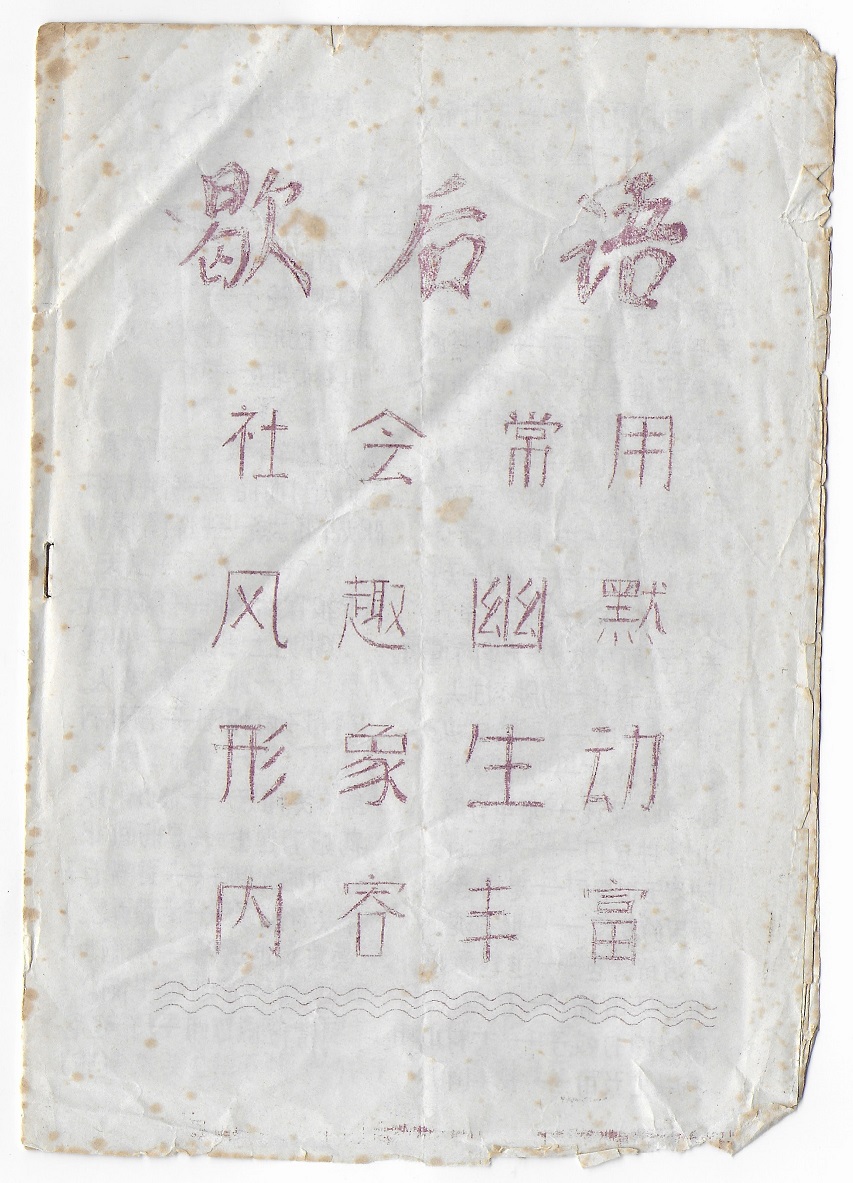 歇后语
社会常用
风趣幽默
形象生动
内容丰富